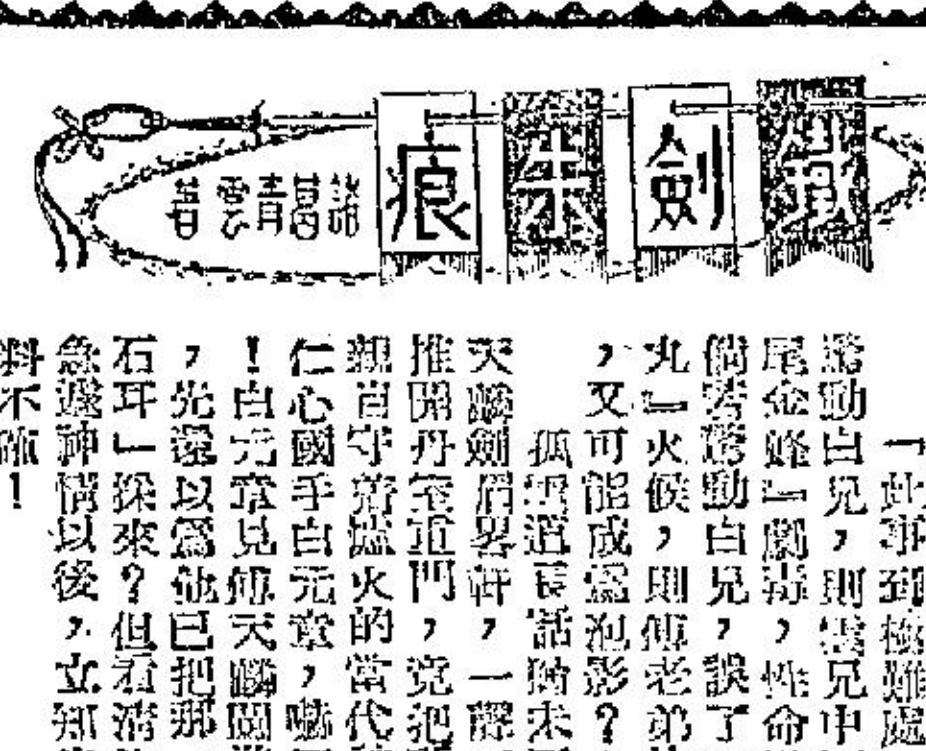 鐵劍朱痕
諸葛青雲著
「此事到極難處
驚動白兄，則兄中
尾金蜂」劇毒，性命
倘若驚動白兄，誤了
丸』火候，則傅老弟
，又可能成爲泡影？
孤道長話未
天麟劍眉畧軒，一
推開丹室重門，竟把
親自守着爐火的當代
仁心國手白元章，嚇
！白元章見傅天麟闖
，光還以爲他已把那
石耳」採來？但看清
急遽神情以後，立知
料不確！